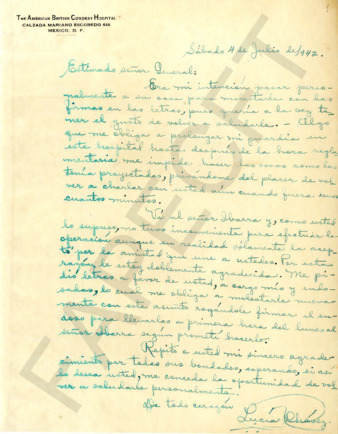 THE AMERICAN BRITISH COWDRAY HOSPITAL
CALZADA MARIANO ESCOBEDO
MEXICO, D. F.
Sábado 4 de Julio de 1942.
Estimado señor General:
Era mi intención pasar perso-
nalmente a su casa para molestarlo con las
firmas en las letras, pues daría a la vez te-
ner el gusto de volver a saludarle. - Algo
que me obliga a prolongar mi guardia en
este hospital hasta después de la hora regla-
mentaria me impide hacer las cosas como las
tenía proyectadas, privándome del placer de vol-
ver a charlar con usted aún cuando fuera unos
cuantos minutos.
Ví al señor Ibarra y, como usted
lo supuso, no tuvo inconveniente para efectuar la
operación aunque en realidad sólamente la acep-
tó por la amistad que une a ustedes. Por esta
razón, le estoy doblemente agradecida. Me pi-
dió letras a favor de usted, a cargo mío y endo-
sadas, lo cual me obliga a molestarle nueva-
mente con este asunto rogándole firmar el en-
doso para llevarlas a primera hora del lunes al
señor Ibarra según prometí hacerlo.
Repito a usted mi sincero agrade-
cimiento por todas sus bondades, esperando, si así
lo desea usted, me conceda la oportunidad de vol-
ver a saludarle personalmente.
De todo corazón
Lucía Chávez
FAMECRT